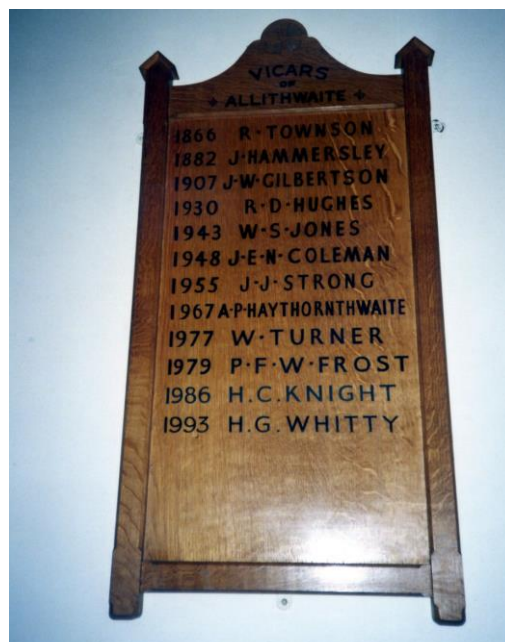 VICARS
OF
+ ALLITHWAITE +
1866 R·TOWNSON
1882 J·HAMMERSLEY
1907 J·W·GILBERTSON
1930 R·D·HUGHES
1943 W·S·JONES
1948 J·E·N·COLEMAN
1955 J·J·STRONG
1967 A·P·HAYTHORNTHWAITE
1977 W·TURNER
1979 P·F·W·FROST
1986 H.C.KNIGHT
1993 H.G.WHITTY